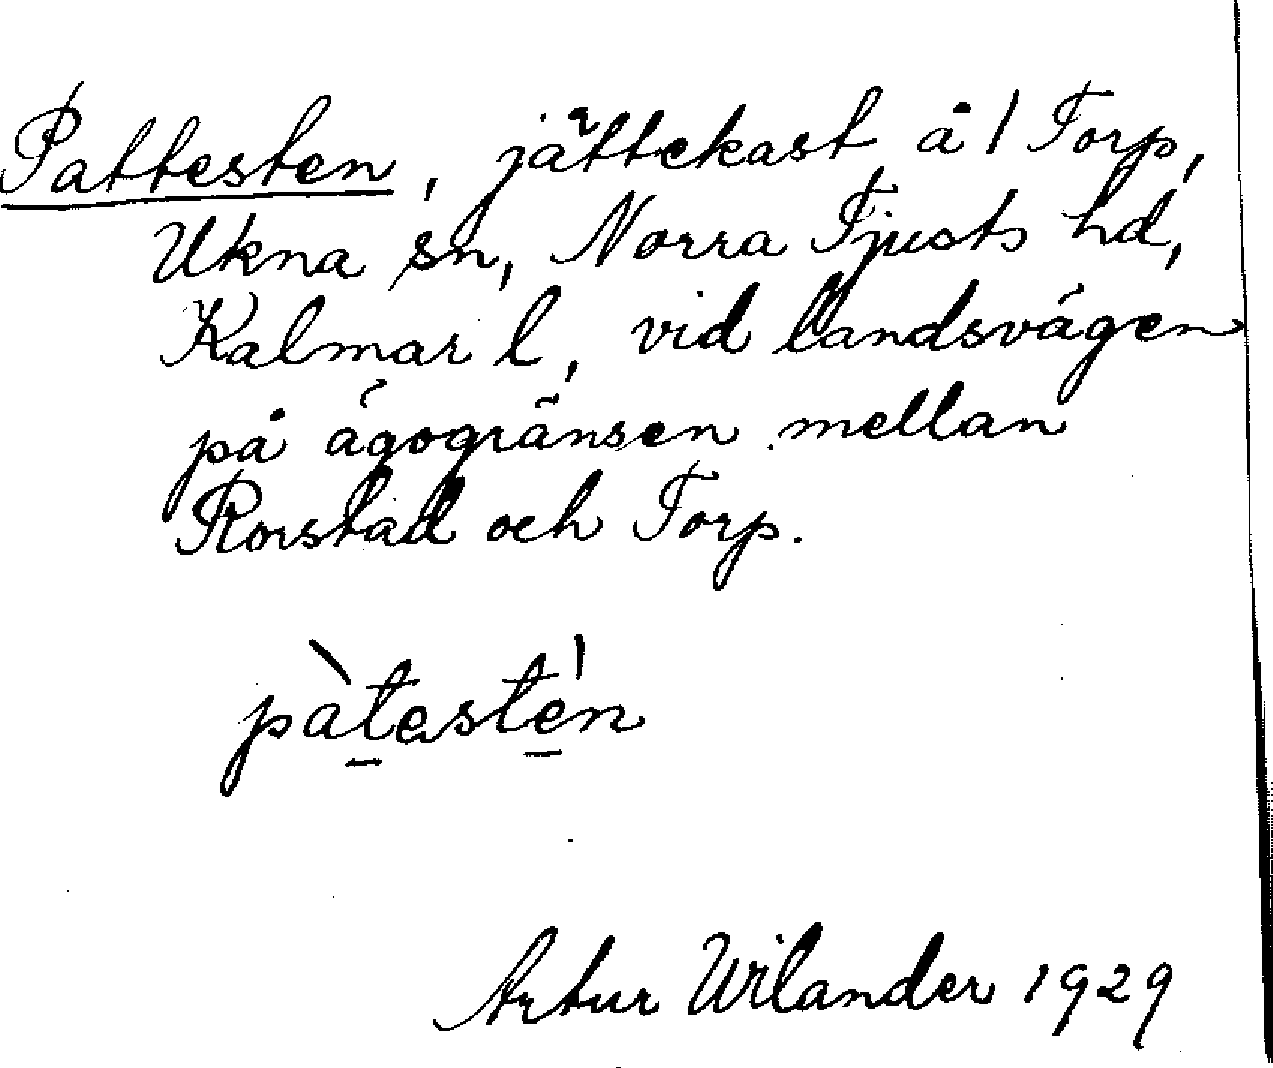 Pattesten, jättekast å 1 Torp,
Ukna sn, Norra Tjusts hd,
Kalmar l, vid landsvägen
på ägogränsen mellan
Rorstad och Torp.
pàtestén
Artur Wilander 1929